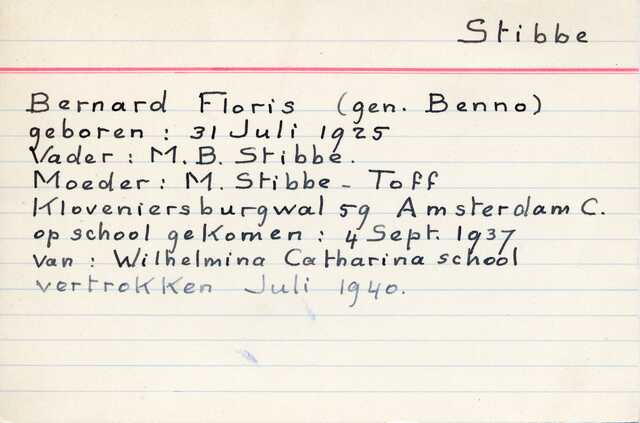 Stibbe
Bernard Floris (gen. Benno)
geboren : 31 Juli 1925
Vader : M. B. Stibbe.
Moeder : M. Stibbe - Toff
Kloveniersburgwal 59 Amsterdam C.
op school gekomen : 4 Sept. 1937
van : Wilhelmina Catharina school
vertrokken Juli 1940.